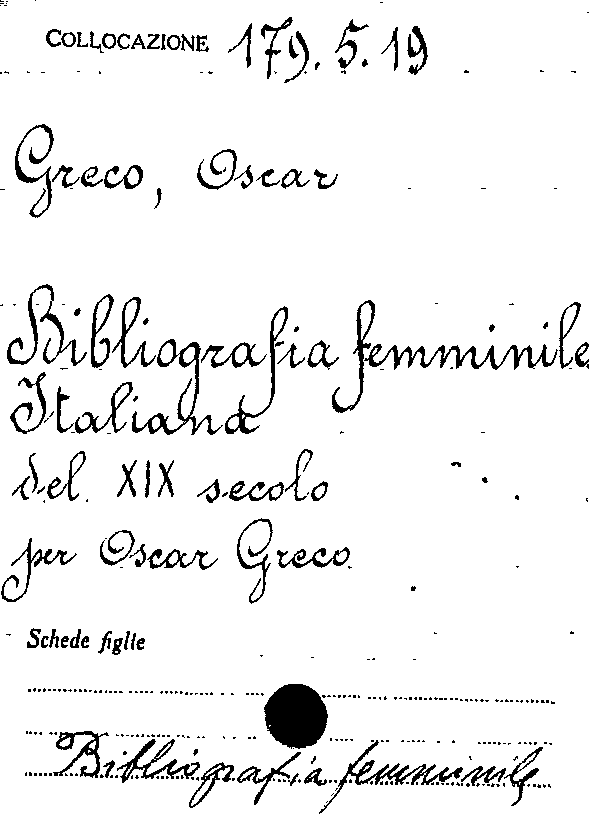 COLLOCAZIONE 179.5.19
Greco, Oscar
Bibliografia femminile
Italiana
del XIX secolo
per Oscar Greco
Schede figlie
Bibliografia femminile